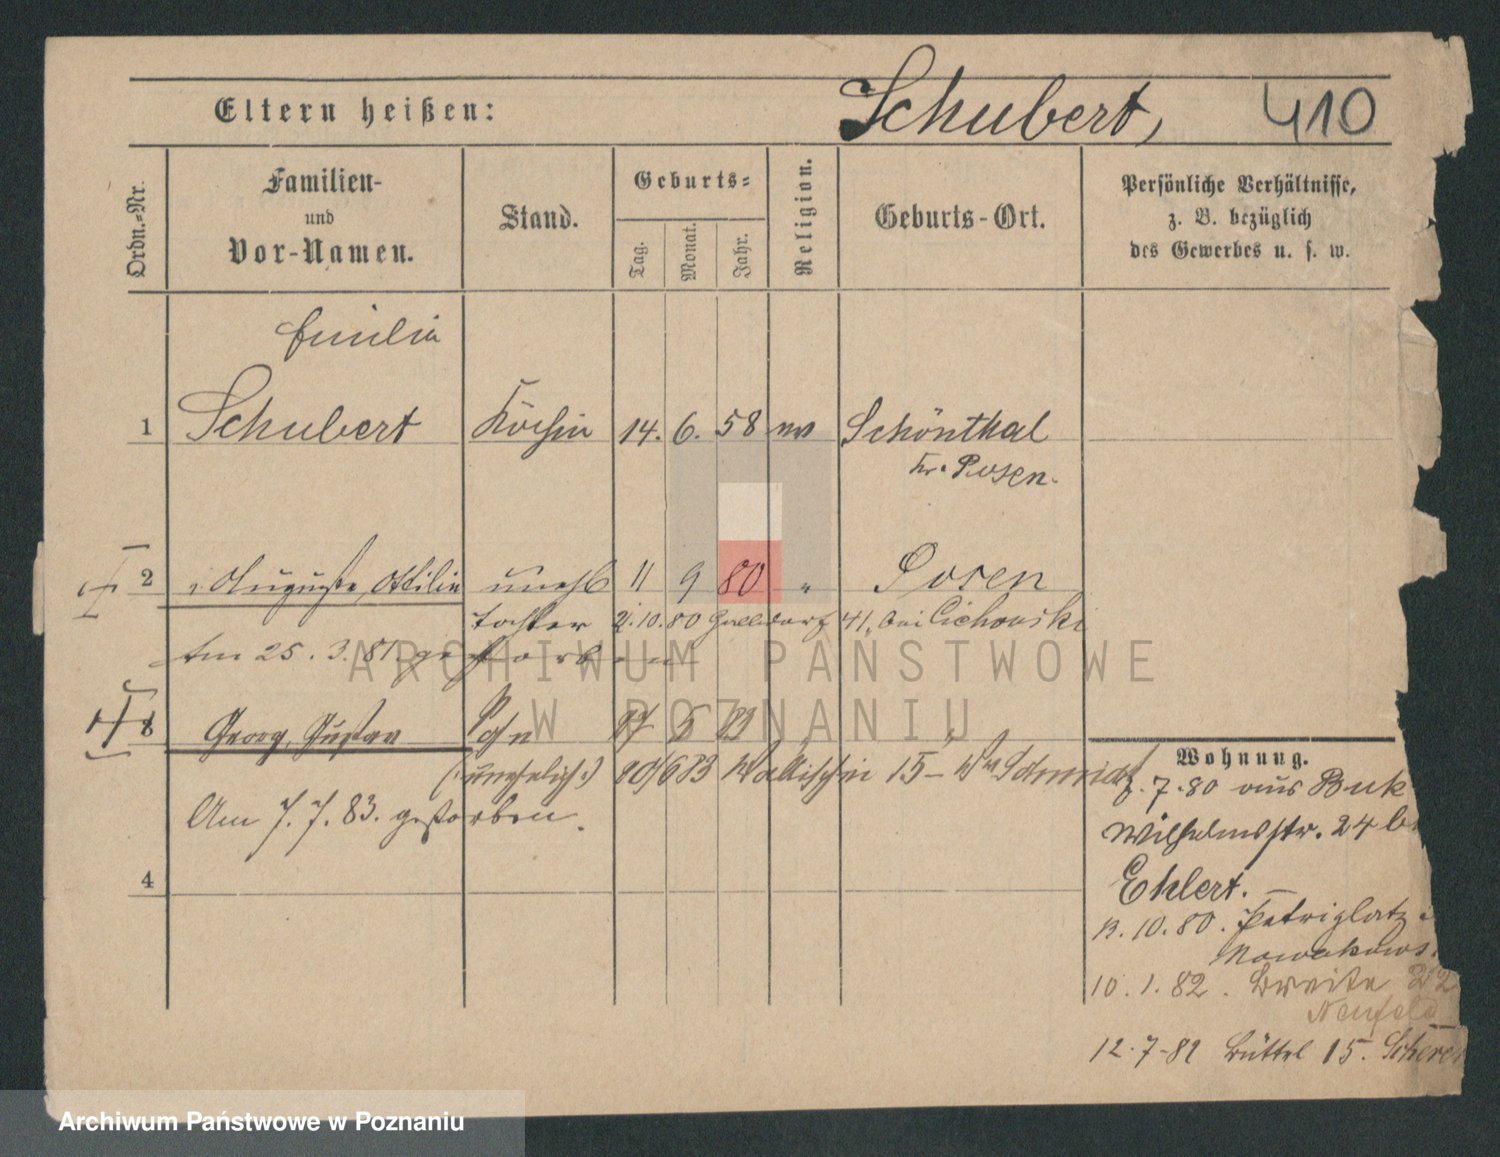 Eltern heißen: Schubert, 410
Ordn.-Nr.
Familien-
und
Vor-Namen.
Stand.
Geburts-
Tag.
Monat.
Jahr.
Religion.
Geburts-Ort.
Persönliche Verhältnisse,
z. B. bezüglich
des Gewerbes u. s. w.
Emilie
1 Schubert Köchin 14. 6. 58 Schönthal
Kr. Posen.
2 Auguste, Ottilie unehl 11 9 80 " Posen
Tochter 2.10.80 41, bei Cichowski
Am 25. 3. 81 gestorben
3 Georg, Gustav Sohn 27 5 83
(unehelich) 10/6 83 Wallischei 15 - Schmidt
Am 7. 7. 83. gestorben.
4
Wohnung.
7.80 aus Buk
Wilhelmsstr. 24 b
Ehlert. -
13.10.80. Petriplatz
Nowakows
10.1.82. Breite 22
Neufeld
12.7-82 Büttel 15.
ARCHIWUM PAŃSTWOWE
W POZNANIU
Archiwum Państwowe w Poznaniu